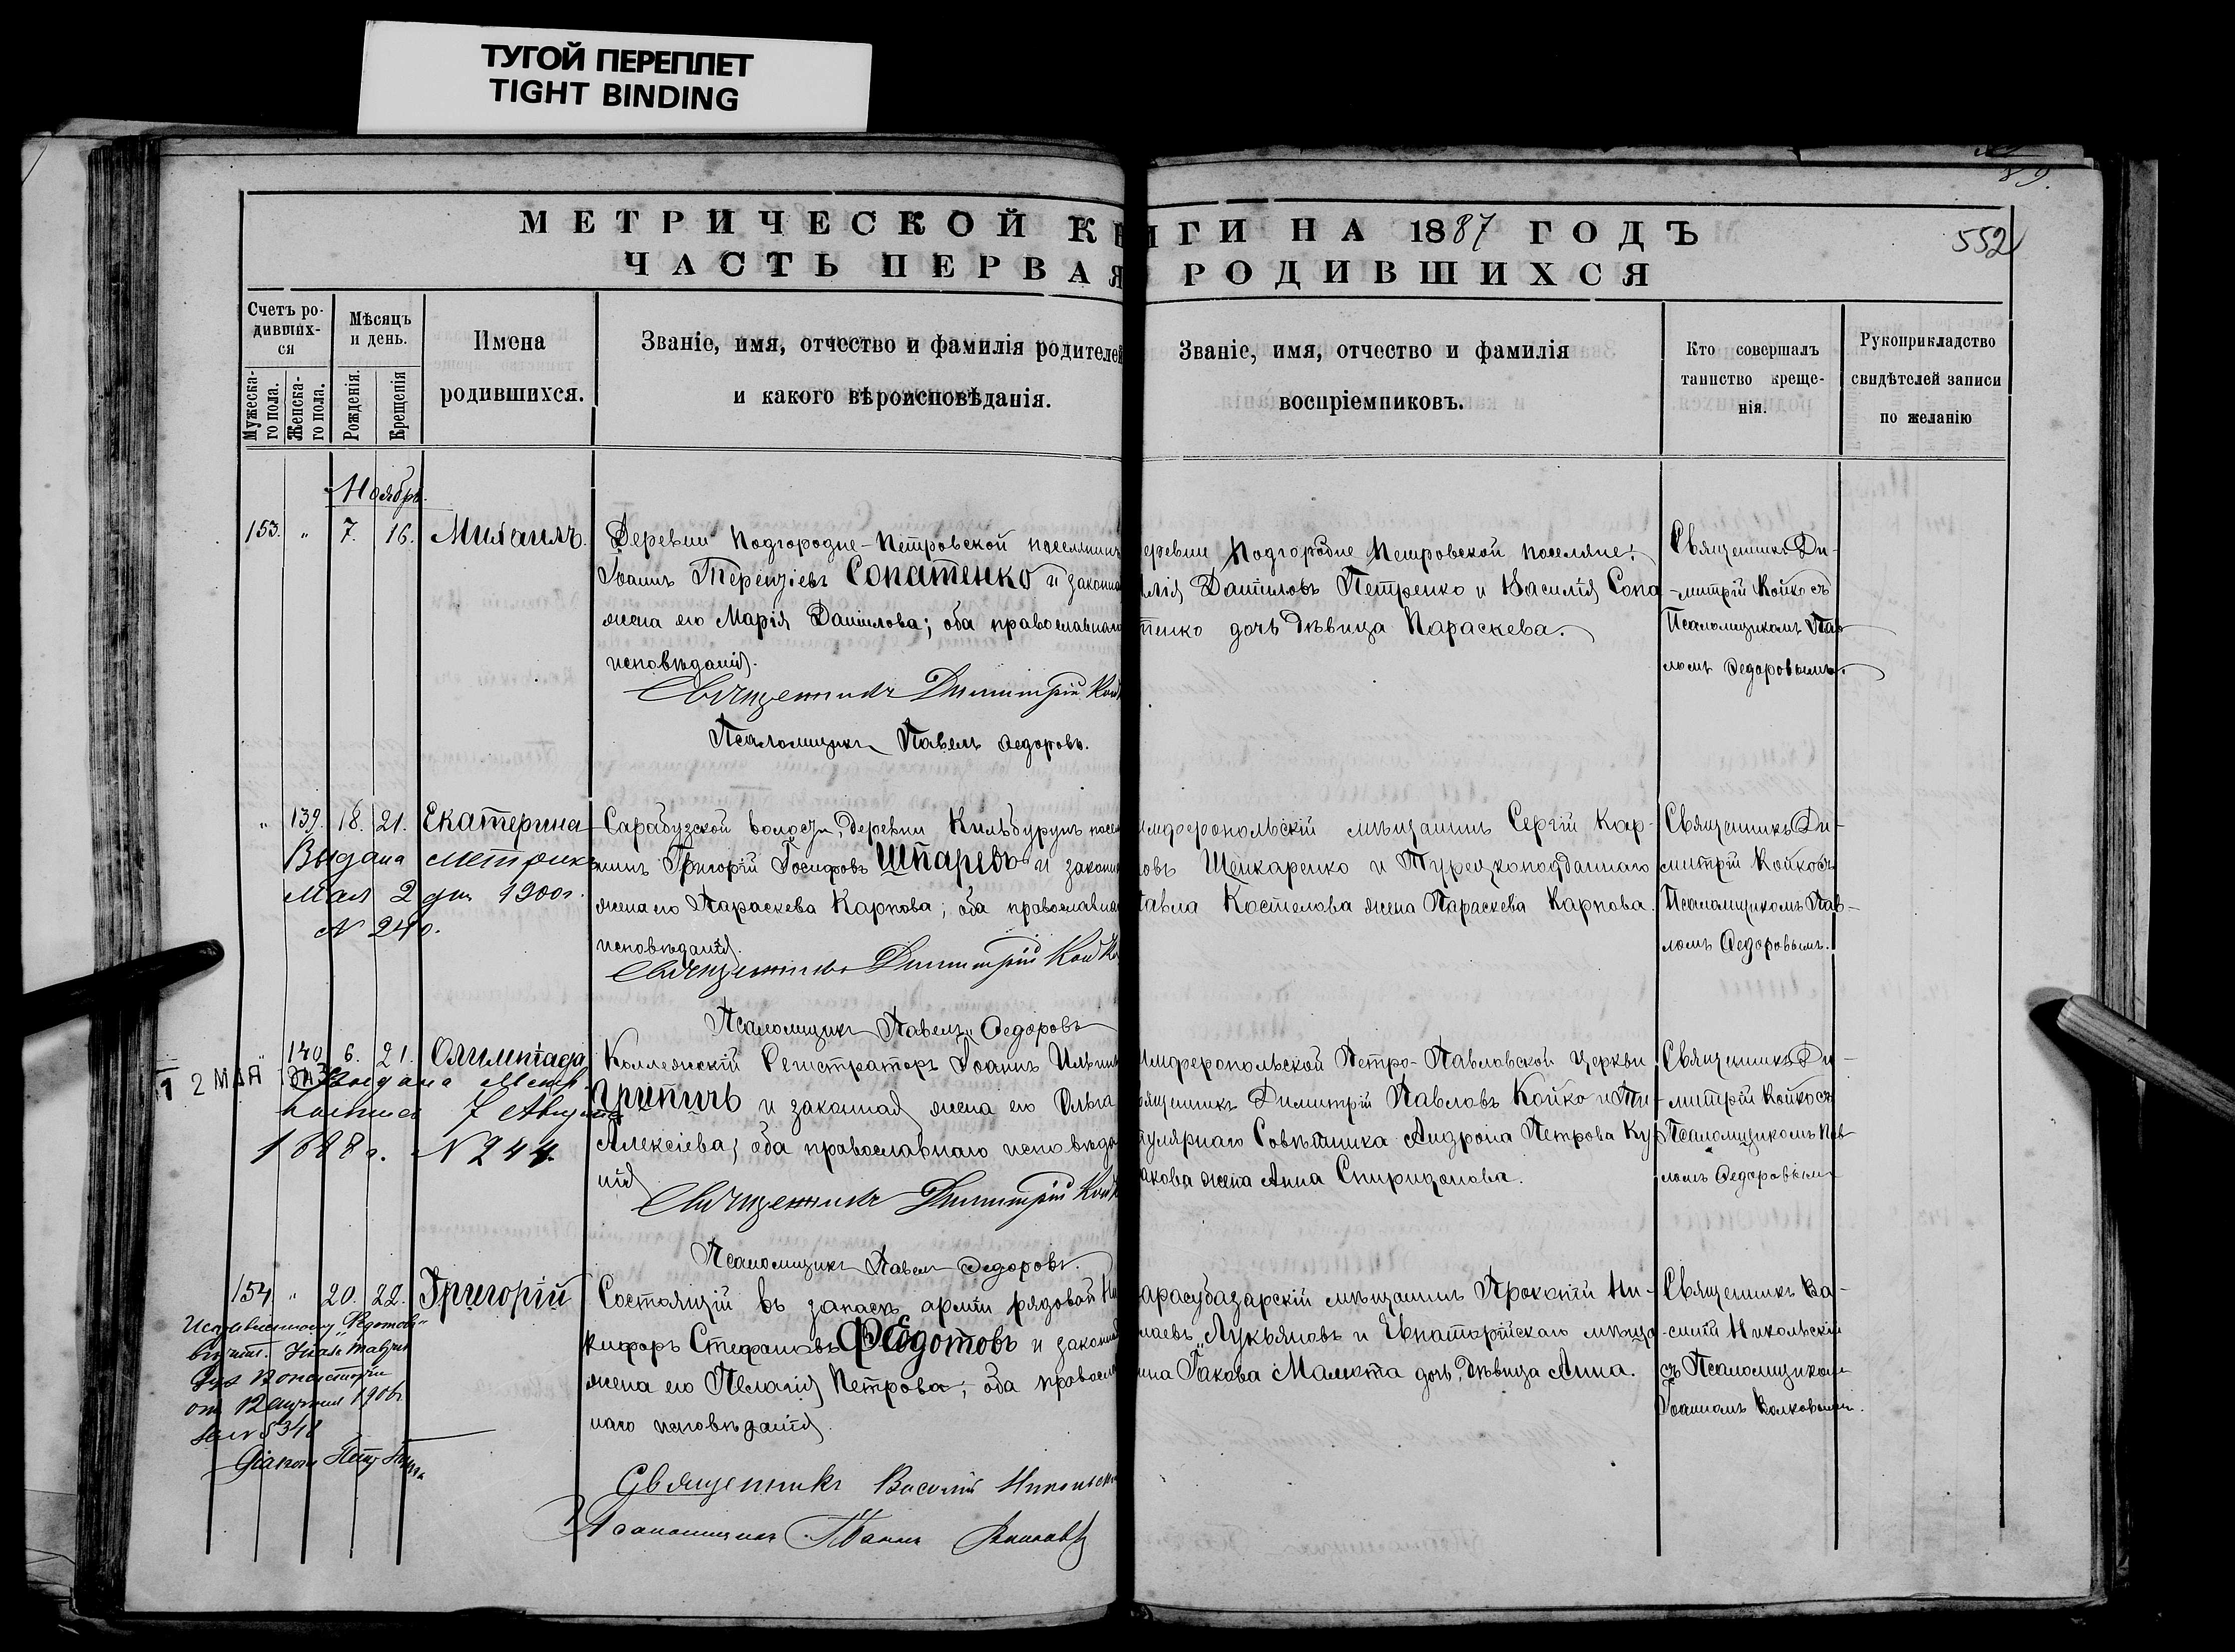 ТУГОЙ ПЕРЕПЛЕТ
TIGHT BINDING
89.
МЕТРИЧЕСКОЙ КНИГИ НА 1887 ГОДЪ
552
ЧАСТЬ ПЕРВАЯ РОДИВШИХСЯ
Счетъ ро-
дивших-
ся
Мужеска-
го пола.
Женска-
го пола.
Мѣсяцъ
и день.
Рожденія.
Крещенія
Имена
родившихся.
Званіе, имя, отчество и фамилія родителей
и какого вѣроисповѣданія.
Званіе, имя, отчество и фамилія
воспріемниковъ.
Кто совершалъ
таинство креще-
нія.
Рукоприкладство
свидѣтелей записи
по желанію
Ноябрь.
153. " 7. 16. Михаилъ.
Деревни Подгородне-Петровской поселянинъ
Іоаннъ Терентіевъ Сопатенко и законна
жена его Марія Даніилова; оба православнаго
исповѣданія.
Священникъ Димитрій Кой
Псаломщикъ Павелъ Федоровъ.
еревни Подгородне Петровской поселяне:
лія Даніиловъ Петренко и Василія Сопа
тенко дочь дѣвица Параскева.
Священникъ Ди-
митрій Койко съ
Псаломщикомъ Пав-
ломъ Федоровымъ.
" 139. 18. 21. Екатерина
Выдана метрика
Мая 2 дня 1900г.
N 240.
Сарабузской волости, деревни Кильбурунъ посел
нинъ Григорій Іосифовъ Шпаревъ и законн
жена его Параскева Карпова; оба православна
исповѣданія.
Священникъ Димитрій Койко
Псаломщикъ Павелъ Федоровъ
имферопольскій мѣщанинъ Сергій Кар-
овъ Шейкаренко и Турецкоподданнаго
Павла Костелова жена Параскева Карпова.
Священникъ Ди-
митрій Койко съ
Псаломщикомъ Пав-
ломъ Федоровымъ.
140 6. 21. Олимпіада
2 МАЯ
Выдана Метр.
7 Августа
1888г. N 244.
Коллежскій Регистраторъ Іоаннъ Ильинъ
Притичъ и законная жена его Ольга
Алексіева; оба православнаго исповѣда
нія
Священникъ Димитрій Кой
Псаломщикъ Павелъ Федоровъ.
имферопольской Петро-Павловской церкви
вященникъ Димитрій Павловъ Койко и Ти-
тулярнаго Совѣтника Андрона Петрова Ку
акова жена Анна Спиридонова.
Священникъ Ди-
митрій Койко съ
Псаломщикомъ Пав-
ломъ Федоровымъ
154 " 20. 22. Григорій
Федотовъ
Консисторіи
отъ 12 1906г
за N 5318
Состоящій въ запасѣ арміи рядовой Ни
кифоръ Стефановъ Федотовъ и законная
жена его Пелагія Петрова; оба православ
наго исповѣданія.
Священникъ Василій Никольскі
Псаломщикъ Іоаннъ Волковъ
арасубазарскій мѣщанинъ Прокопій Ни-
лаевъ Лукьяновъ и Евпаторійскаго мѣща-
нина Іакова Малюта дочь, дѣвица Анна.
Священникъ Ва-
силій Никольскій
съ Псаломщикомъ
Іоанномъ Волковымъ.